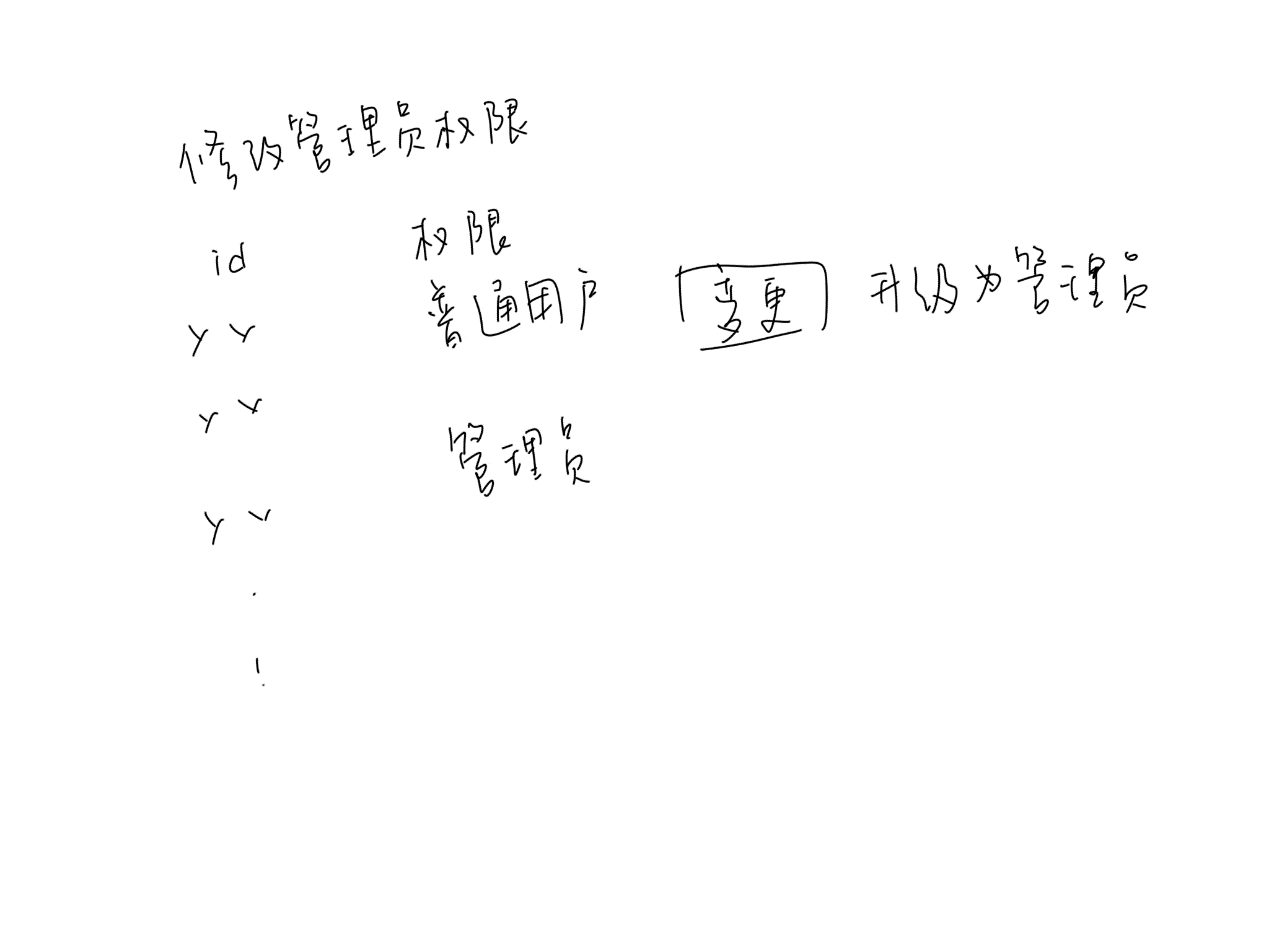 修改管理员权限
id 权限
普通用户 变更 升级为管理员
管理员